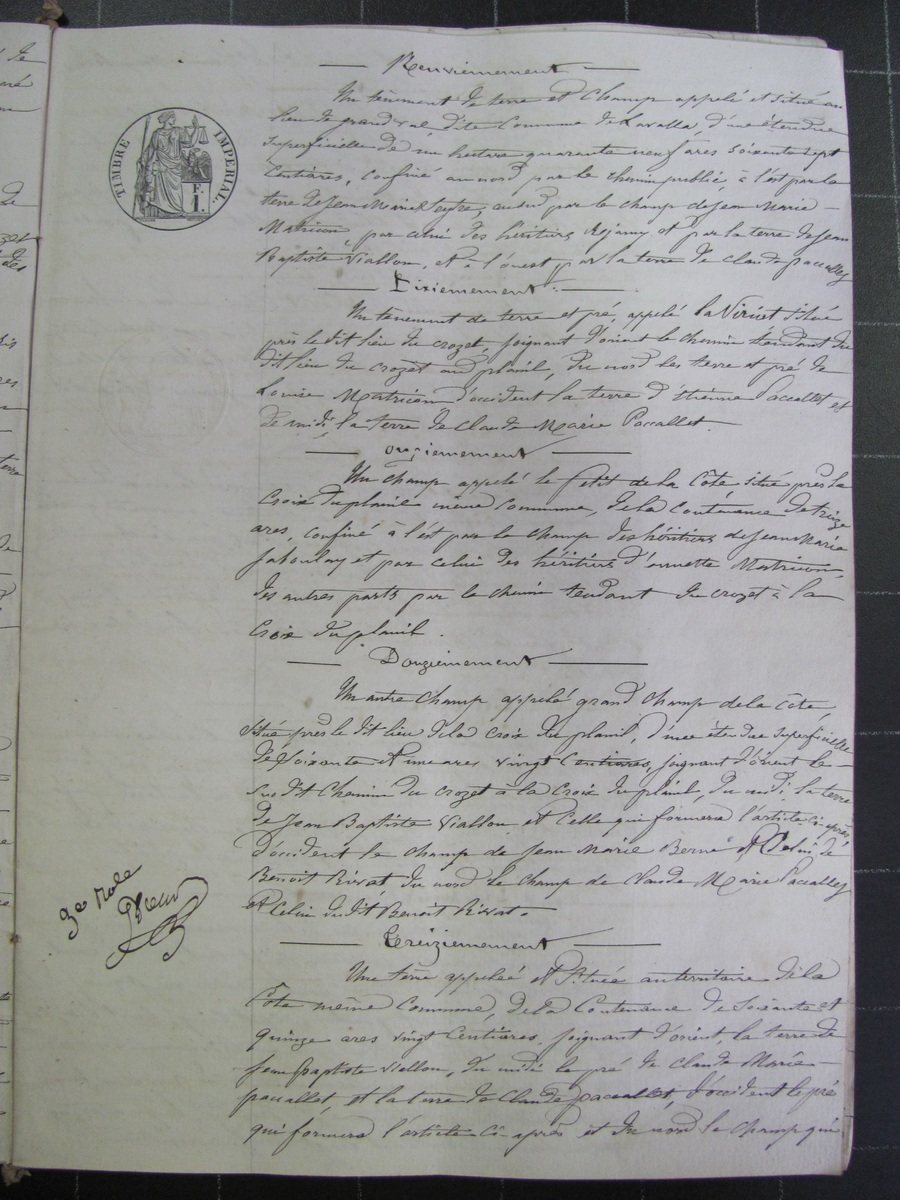 Neuvièmement
Un tènement de terre et Champ appelé et situé au
lieu de grand val dite Commune de Lavalla, d'une étendue
superficielle de un hectare quarante neuf ares soixante sept
Centiares, confiné au nord par le chemin public, à l'est par la
terre de Jean Marie Teyte, au sud par le champ de Jean Marie
Matricon par celui des héritiers et par la terre de Jean
Baptiste Viallon, et à l'ouest par la terre de Claude paccallet
Dixièmement
Un tènement de terre et pré, appelé la Viriet situé
près le dit lieu du crozet, joignant d'orient le chemin tendant du
dit lieu du crozet au planil, du nord les terre et pré de
Louise Matricon d'occident la terre d'étienne Paccallet et
de midi la terre de Claude Marie Paccallet.
onzièmement
Un champ appelé le petit de la Côte situé près la
Croix du planil même Commune, de la contenance de treize
ares, confiné à l'est par le champ des héritiers de Jean Marie
Jaboulay et par celui des héritiers d'annette Matricon,
des autres parts par le chemin tendant du crozet à la
Croix du planil.
Douzièmement
Un autre champ appelé grand champ de la côte,
situé près le dit lieu de la croix du planil, d'une étendue superficielle
de soixante et une ares vingt Centiares, joignant d'orient le
susdit Chemin du crozet à la Croix du planil, du midi la terre
de Jean Baptiste Viallon et Celle qui formera l'article ci-après
d'occident le champ de Jean Marie Berne et Celui de
Benoit Rivat du nord le champ de Claude Marie Paccallet
et Celui du dit Benoit Rivat.
Treizièmement
Une terre appelée et Située au territoire de la
Côte même Commune, de la Contenance de Soixante et
quinze ares vingt Centiares, joignant d'orient, la terre de
Jean Baptiste Viallon, du midi le pré de Claude Marie
paccallet, et la terre de Claude paccallet, d'occident le pré
qui formera l'article Ci-après et du nord le champ qui
TIMBRE IMPERIAL
F.
I.
3e rôle